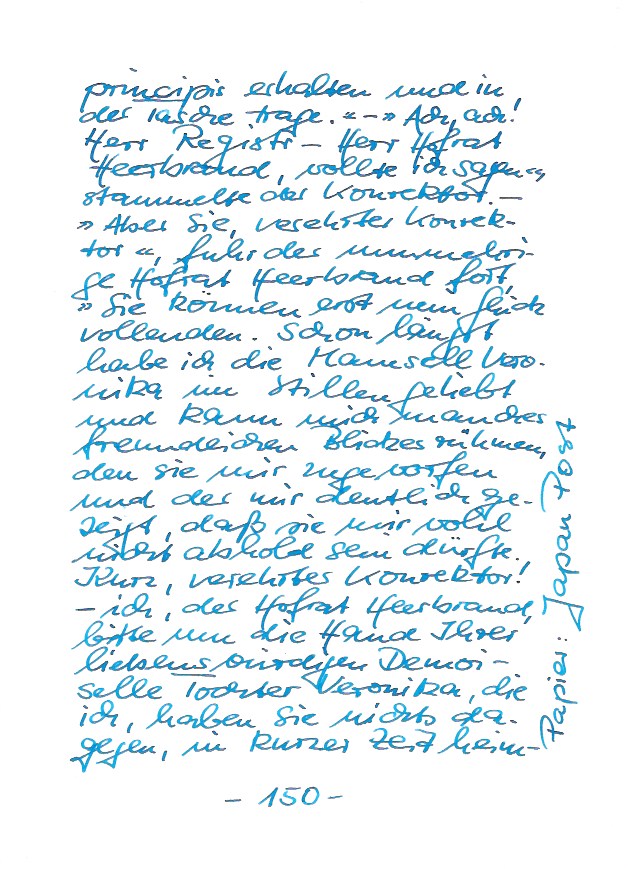 principis erhalten und in
der Tasche trage.“ – » Ach, ach!
Herr Registr – Herr Hofrat
Heerbrand, wollte ich sagen“,
stammelte der Konrektor. –
» Aber Sie, verehrter Konrek-
tor “, fuhr der nunmehri-
ge Hofrat Heerbrand fort,
» Sie können erst mein Glück
vollenden. Schon längst
habe ich die Mamsell Vero-
nika im Stillen geliebt
und kann mich manches
freundlichen Blickes rühmen,
den sie mir zugeworfen
und der mir deutlich ge-
zeigt, daß sie mir wohl
nicht abhold sein dürfte.
Kurz, verehrter Konrektor!
– ich, der Hofrat Heerbrand,
bitte um die Hand Ihrer
liebenswürdigen Demoi-
selle Tochter Veronika, die
ich, haben Sie nichts da-
gegen, in kurzer Zeit heim-
Papier: Japan Post
– 150 –